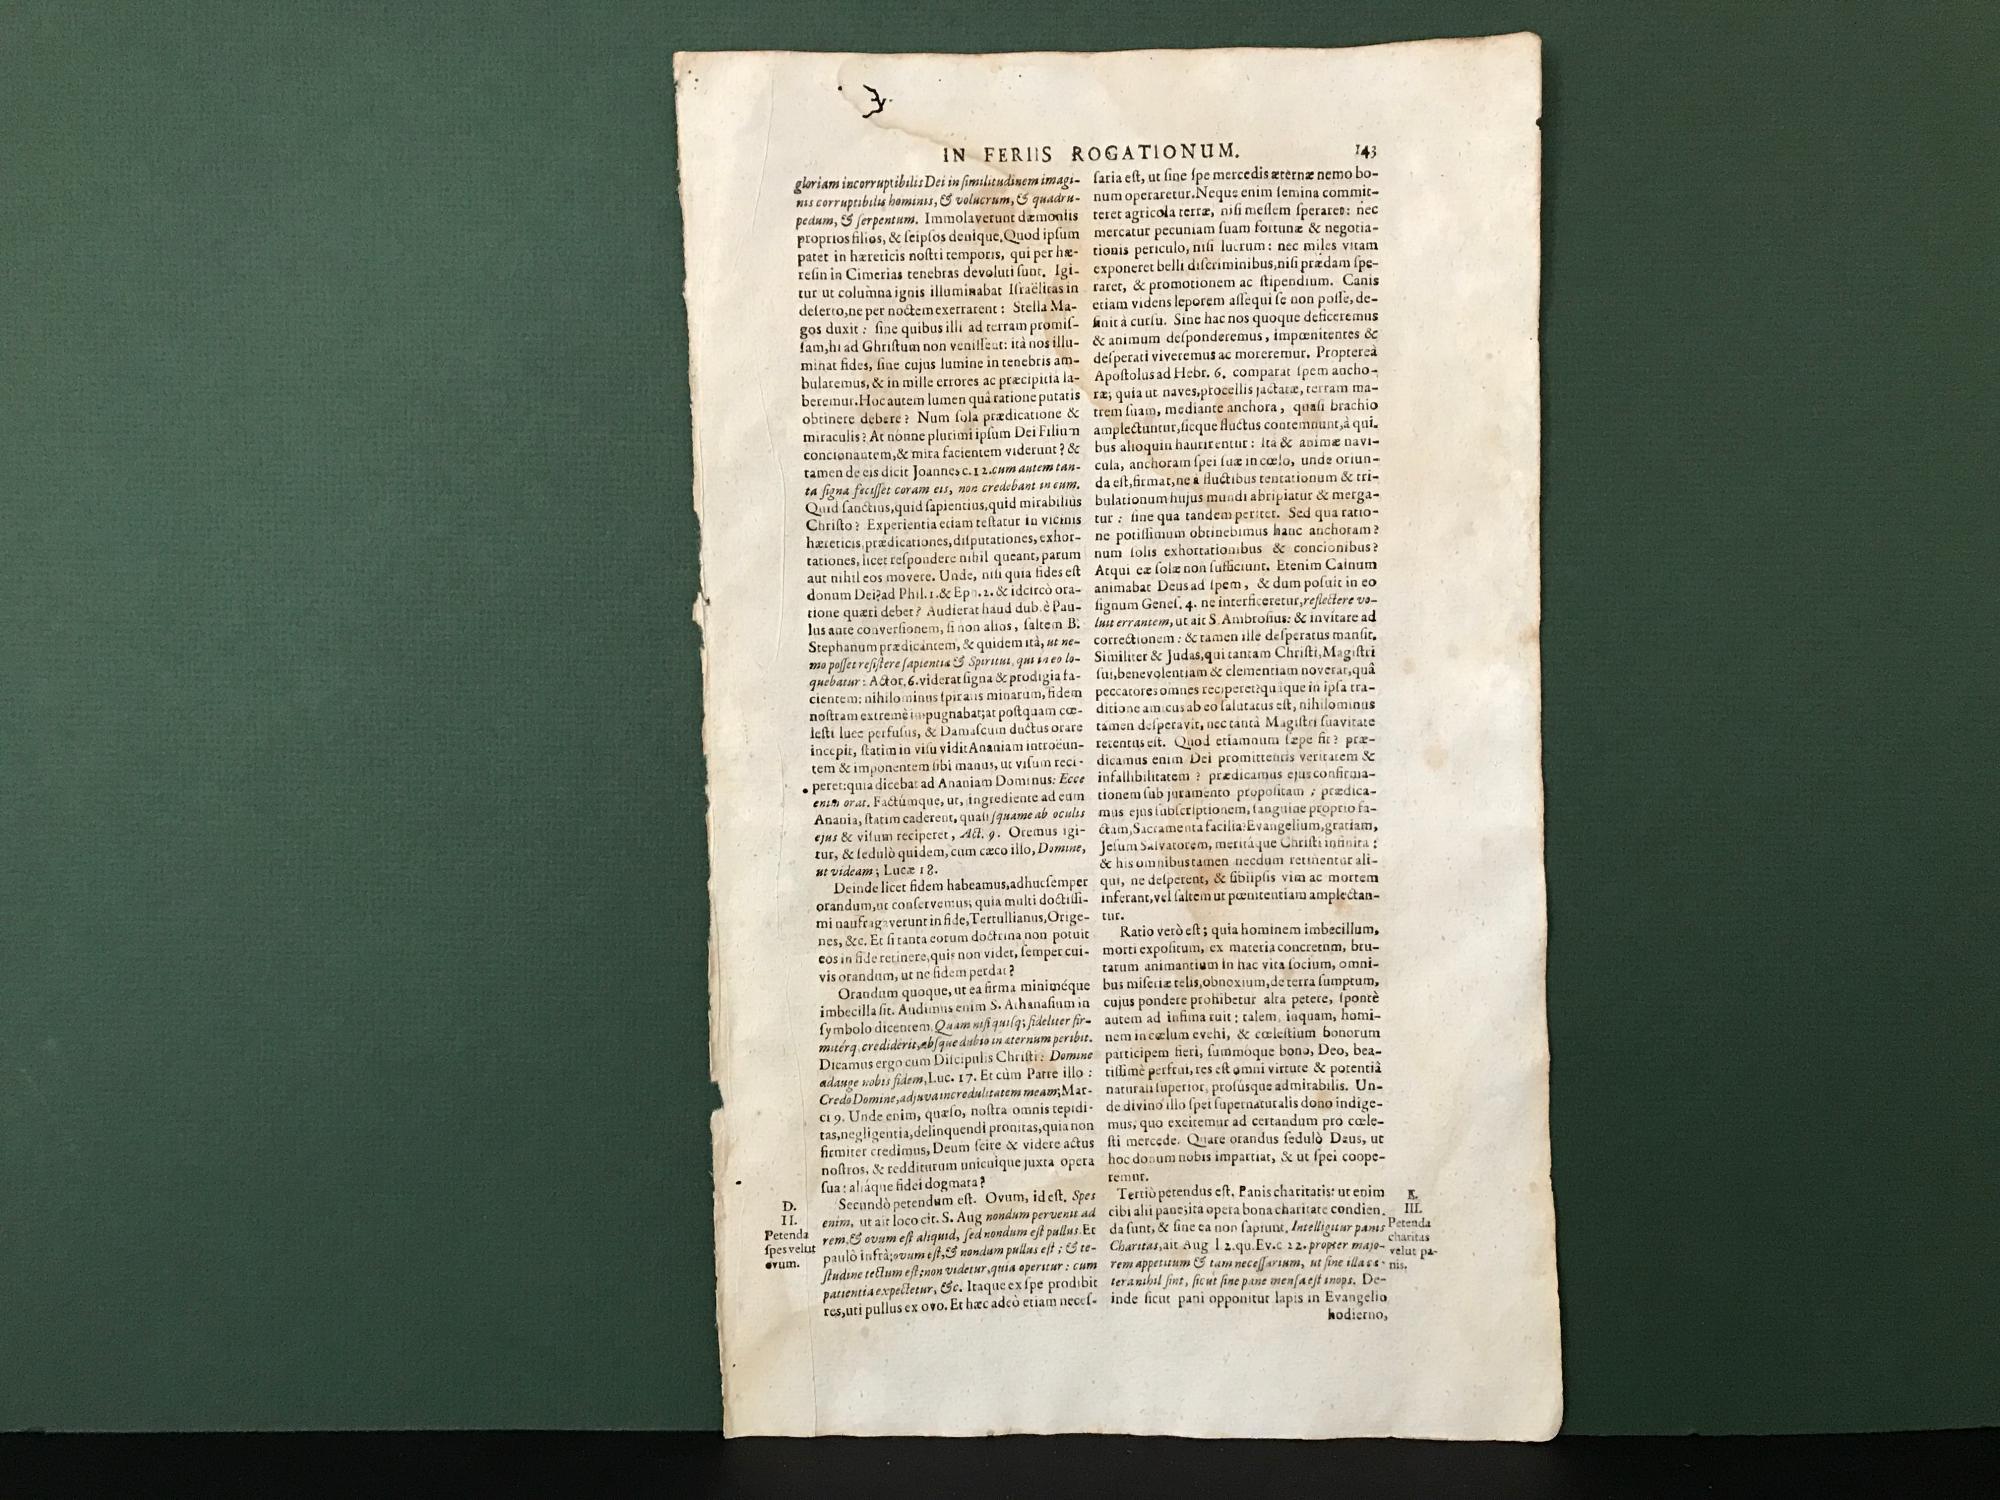 IN FERIIS ROGATIONUM. 143
gloriam incorruptibilis Dei in ſimilitudinem imagi-
nis corruptibilis hominis, & volucrum, & quadru-
pedum, & ſerpentum. Immolaverunt dæmoniis
proprios filios, & ſeipſos denique. Quod ipſum
patet in hæreticis noſtri temporis, qui per hæ-
reſin in Cimerias tenebras devoluti ſunt. Igi-
tur ut columna ignis illuminabat Iſraëlitas in
deſerto, ne per noctem exerrarent: Stella Ma-
gos duxit: ſine quibus illi ad terram promiſ-
ſam, hi ad Ghriſtum non veniſſent: ità nos illu-
minat fides, ſine cujus lumine in tenebris am-
bularemus, & in mille errores ac præcipitia la-
beremur. Hoc autem lumen quâ ratione putatis
obtinere debere? Num ſola prædicatione &
miraculis? At nonne plurimi ipſum Dei Filium
concionantem, & mira facientem viderunt? &
tamen de eis dicit Joannes c. 12. cum autem tan-
ta ſigna feciſſet coram eis, non credebant in eum.
Quid ſanctius, quid ſapientius, quid mirabilius
Chriſto? Experientia etiam teſtatur in vicinis
hæreticis, prædicationes, diſputationes, exhor-
tationes, licet reſpondere nihil queant, parum
aut nihil eos movere. Unde, niſi quia fides eſt
donum Dei? ad Phil. 1. & Eph. 2. & idcircò ora-
tione quæri debet? Audierat haud dubiè Pau-
lus ante converſionem, ſi non alios, ſaltem B.
Stephanum prædicantem, & quidem ità, ut ne-
mo poſſet reſiſtere ſapientiæ & Spiritui, qui in eo lo-
quebatur: Actor. 6. viderat ſigna & prodigia fa-
cientem: nihilominus ſpirans minarum, fidem
noſtram extremè impugnabat; at poſtquam cœ-
leſti luce perfuſus, & Damaſcum ductus orare
incepit, ſtatim in viſu vidit Ananiam introëun-
tem & imponentem ſibi manus, ut viſum reci-
peret: quia dicebat ad Ananiam Dominus: Ecce
enim orat. Factúmque, ut, ingrediente ad eum
Anania, ſtatim caderent, quaſi ſquamæ ab oculis
ejus & viſum reciperet, Act. 9. Oremus igi-
tur, & ſedulò quidem, cum cæco illo, Domine,
ut videam; Lucæ 18.
Deinde licet fidem habeamus, adhuc ſemper
orandum, ut conſervemus; quia multi doctiſſi-
mi naufragaverunt in fide, Tertullianus, Orige-
nes, &c. Et ſi tanta eorum doctrina non potuit
eos in fide retinere, quis non videt, ſemper cui-
vis orandum, ut ne fidem perdat?
Orandum quoque, ut ea firma miniméque
imbecilla ſit. Audimus enim S. Athanaſium in
ſymbolo dicentem. Quam niſi quiſq; fideliter fir-
mitérq. crediderit, abſque dubio in æternum peribit.
Dicamus ergo cum Diſcipulis Chriſti: Domine
adauge nobis fidem, Luc. 17. Et cùm Patre illo:
Credo Domine, adjuva incredulitatem meam; Mar-
ci 9. Unde enim, quæſo, noſtra omnis tepidi-
tas, negligentia, delinquendi pronitas, quia non
firmiter credimus, Deum ſcire & videre actus
noſtros, & redditurum unicuique juxta opera
ſua: aliáque fidei dogmata?
D.
II.
Petenda
ſpes velut
ovum.
Secundò petendum eſt. Ovum, id eſt. Spes
enim, ut ait loco cit. S. Aug nondum pervenit ad
rem, & ovum eſt aliquid, ſed nondum eſt pullus. Et
paulò infrà; ovum eſt, & nondum pullus eſt; & te-
ſtudine tectum eſt; non videtur, quia operitur: cum
patientia expectetur, &c. Itaque ex ſpe prodibit
res, uti pullus ex ovo. Et hæc adeò etiam neceſ-
ſaria eſt, ut ſine ſpe mercedis æternæ nemo bo-
num operaretur. Neque enim ſemina commit-
teret agricola terræ, niſi meſſem ſperaret: nec
mercatur pecuniam ſuam fortunæ & negotia-
tionis periculo, niſi lucrum: nec miles vitam
exponeret belli diſcriminibus, niſi prædam ſpe-
raret, & promotionem ac ſtipendium. Canis
etiam videns leporem aſſequi ſe non poſſe, de-
ſinit à curſu. Sine hac nos quoque deficeremus
& animum deſponderemus, impœnitentes &
deſperati viveremus ac moreremur. Proptereà
Apoſtolus ad Hebr. 6. comparat ſpem ancho-
ræ; quia ut naves, procellis jactatæ, terram ma-
trem ſuam, mediante anchora, quaſi brachio
amplectuntur, ſicque fluctus contemnunt, à qui-
bus alioquin haurirentur: Ità & animæ navi-
cula, anchoram ſpei ſuæ in cœlo, unde oriun-
da eſt, firmat, ne à fluctibus tentationum & tri-
bulationum hujus mundi abripiatur & merga-
tur: ſine qua tandem periret. Sed qua ratio-
ne potiſſimum obtinebimus hanc anchoram?
num ſolis exhortationibus & concionibus?
Atqui eæ ſolæ non ſufficiunt. Etenim Cainum
animabat Deus ad ſpem, & dum poſuit in eo
ſignum Geneſ. 4. ne interficeretur, reflectere vo-
luit errantem, ut ait S. Ambroſius: & invitare ad
correctionem: & tamen ille deſperatus manſit.
Similiter & Judas, qui tantam Chriſti, Magiſtri
ſui, benevolentiam & clementiam noverat, quâ
peccatores omnes reciperet? qui que in ipſa tra-
ditione amicus ab eo ſalutatus eſt, nihilominus
tamen deſperavit, nec tantâ Magiſtri ſuavitate
retentus eſt. Quod etiamnum ſæpe fit? præ-
dicamus enim Dei promittentis veritatem &
infallibilitatem? prædicamus ejus confirma-
tionem ſub juramento propoſitam; prædica-
mus ejus ſubſcriptionem, ſanguine proprio fa-
ctam, Sacramenta facilia: Evangelium, gratiam,
Jeſum Salvatorem, meritáque Chriſti infinita:
& his omnibus tamen necdum retinentur ali-
qui, ne deſperent, & ſibiipſis vim ac mortem
inferant, vel ſaltem ut pœnitentiam amplectan-
tur.
Ratio verò eſt; quia hominem imbecillum,
morti expoſitum, ex materia concretum, bru-
tatum animantium in hac vita ſocium, omni-
bus miſeriæ telis, obnoxium, de terra ſumptum,
cujus pondere prohibetur alta petere, ſpontè
autem ad infima ruit: talem, inquam, homi-
nem in cœlum evehi, & cœleſtium bonorum
participem fieri, ſummóque bono, Deo, bea-
tiſſimè perfrui, res eſt omni virtute & potentiâ
naturali ſuperior, proſúsque admirabilis. Un-
de divino illo ſpei ſupernaturalis dono indige-
mus, quo excitemur ad certandum pro cœle-
ſti mercede. Quare orandus ſedulò Deus, ut
hoc donum nobis impartiat, & ut ſpei coope-
remur.
Tertiò petendus eſt. Panis charitatis: ut enim
cibi alii pane; ita opera bona charitate condien-
da ſunt, & ſine ea non ſapiunt. Intelligitur panis
Charitas, ait Aug l 2. qu. Ev. c 22. propter majo-
rem appetitum & tam neceſſarium, ut ſine illa cæ-
tera nihil ſint, ſicut ſine pane menſa eſt inops. De-
inde ſicut pani opponitur lapis in Evangelio
hodierno,
E.
III.
Petenda
charitas
velut pa-
nis.